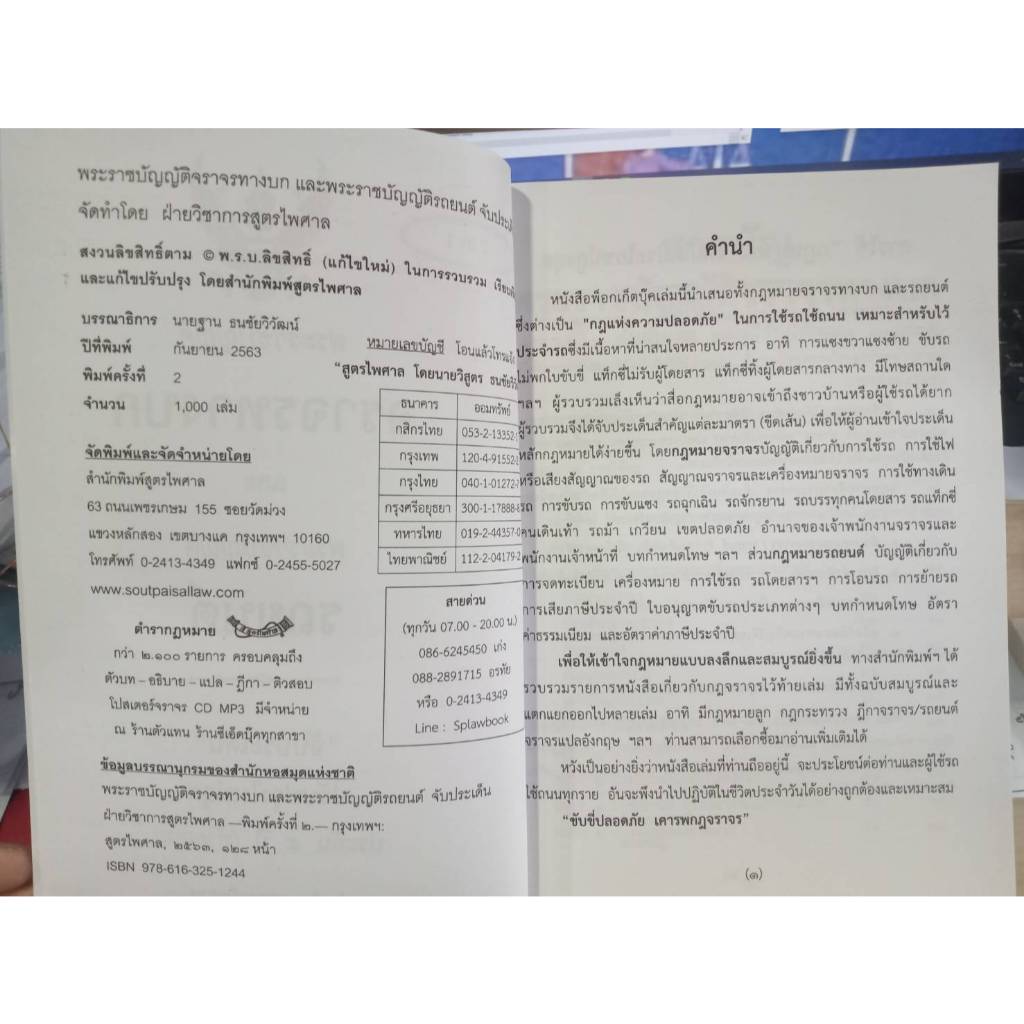 พระราชบัญญัติจราจรทางบก และพระราชบัญญัติรถยนต์
จัดทำโดย ฝ่ายวิชาการสูตรไพศาล
สงวนลิขสิทธิ์ตาม © พ.ร.บ.ลิขสิทธิ์ (แก้ไขใหม่) ในการรวบรวม
และแก้ไขปรับปรุง โดยสำนักพิมพ์สูตรไพศาล
บรรณาธิการ นายฐาน ธนชัยวิวัฒน์
ปีที่พิมพ์ กันยายน 2563
พิมพ์ครั้งที่ 2
จำนวน 1,000 เล่ม
จัดพิมพ์และจัดจำหน่ายโดย
สำนักพิมพ์สูตรไพศาล
63 ถนนเพชรเกษม 155 ซอยวัดม่วง
แขวงหลักสอง เขตบางแค กรุงเทพฯ 10160
โทรศัพท์ 0-2413-4349 แฟกซ์ 0-2455-5027
www.soutpaisallaw.com
ตำรากฎหมาย
กว่า ๒,๑๐๐ รายการ ครอบคลุมถึง
ตัวบท – อธิบาย – แปล – ฎีกา – ติวสอบ
โปสเตอร์จราจร CD MP3 มีจำหน่าย
ณ ร้านตัวแทน ร้านซีเอ็ดบุ๊คทุกสาขา
หมายเลขบัญชี
"สูตรไพศาล โดยนายวิสูตร
ธนาคาร ออมทรัพย์
กสิกรไทย 053-2-13352-
กรุงเทพ 120-4-91552-
กรุงไทย 040-1-01272-
กรุงศรีอยุธยา 300-1-17888-
ทหารไทย 019-2-44357-
ไทยพาณิชย์ 112-2-04179-
สายด่วน
(ทุกวัน 07.00 - 20.00 น.)
086-6245450 เก่ง
088-2891715 อรทัย
หรือ 0-2413-4349
Line : Splawbook
ข้อมูลบรรณานุกรมของสำนักหอสมุดแห่งชาติ
พระราชบัญญัติจราจรทางบก และพระราชบัญญัติรถยนต์ จับประเด็น
ฝ่ายวิชาการสูตรไพศาล —พิมพ์ครั้งที่ ๒.— กรุงเทพฯ:
สูตรไพศาล, ๒๕๖๓, ๑๒๘ หน้า
ISBN 978-616-325-1244
คำนำ
หนังสือพ็อกเก็ตบุ๊คเล่มนี้นำเสนอทั้งกฎหมายจราจรทางบก และรถยนต์
ซึ่งต่างเป็น "กฎแห่งความปลอดภัย" ในการใช้รถใช้ถนน เหมาะสำหรับไว้
ประจำรถซึ่งมีเนื้อหาที่น่าสนใจหลายประการ อาทิ การแซงขวาแซงซ้าย ขับรถ
ไม่พกใบขับขี่ แท็กซี่ไม่รับผู้โดยสาร แท็กซี่ทิ้งผู้โดยสารกลางทาง มีโทษสถานใด
ฯลฯ ผู้รวบรวมเล็งเห็นว่าสื่อกฎหมายอาจเข้าถึงชาวบ้านหรือผู้ใช้รถได้ยาก
ผู้รวบรวมจึงได้จับประเด็นสำคัญแต่ละมาตรา (ขีดเส้น) เพื่อให้ผู้อ่านเข้าใจประเด็น
หลักกฎหมายได้ง่ายขึ้น โดยกฎหมายจราจรบัญญัติเกี่ยวกับการใช้รถ การใช้ไฟ
หรือเสียงสัญญาณของรถ สัญญาณจราจรและเครื่องหมายจราจร การใช้ทางเดิน
รถ การขับรถ การขับแซง รถฉุกเฉิน รถจักรยาน รถบรรทุกคนโดยสาร รถแท็กซี่
คนเดินเท้า รถม้า เกวียน เขตปลอดภัย อำนาจของเจ้าพนักงานจราจรและ
พนักงานเจ้าหน้าที่ บทกำหนดโทษ ฯลฯ ส่วนกฎหมายรถยนต์ บัญญัติเกี่ยวกับ
การจดทะเบียน เครื่องหมาย การใช้รถ รถโดยสารฯ การโอนรถ การย้ายรถ
การเสียภาษีประจำปี ใบอนุญาตขับรถประเภทต่างๆ บทกำหนดโทษ อัตรา
ค่าธรรมเนียม และอัตราค่าภาษีประจำปี
เพื่อให้เข้าใจกฎหมายแบบลงลึกและสมบูรณ์ยิ่งขึ้น ทางสำนักพิมพ์ฯ ได้
รวบรวมรายการหนังสือเกี่ยวกับกฎจราจรไว้ท้ายเล่ม มีทั้งฉบับสมบูรณ์และ
แตกแยกออกไปหลายเล่ม อาทิ มีกฎหมายลูก กฎกระทรวง ฎีกาจราจร/รถยนต์
จราจรแปลอังกฤษ ฯลฯ ท่านสามารถเลือกซื้อมาอ่านเพิ่มเติมได้
หวังเป็นอย่างยิ่งว่าหนังสือเล่มที่ท่านถืออยู่นี้ จะประโยชน์ต่อท่านและผู้ใช้รถ
ใช้ถนนทุกราย อันจะพึงนำไปปฏิบัติในชีวิตประจำวันได้อย่างถูกต้องและเหมาะสม
"ขับขี่ปลอดภัย เคารพกฎจราจร"
(๑)